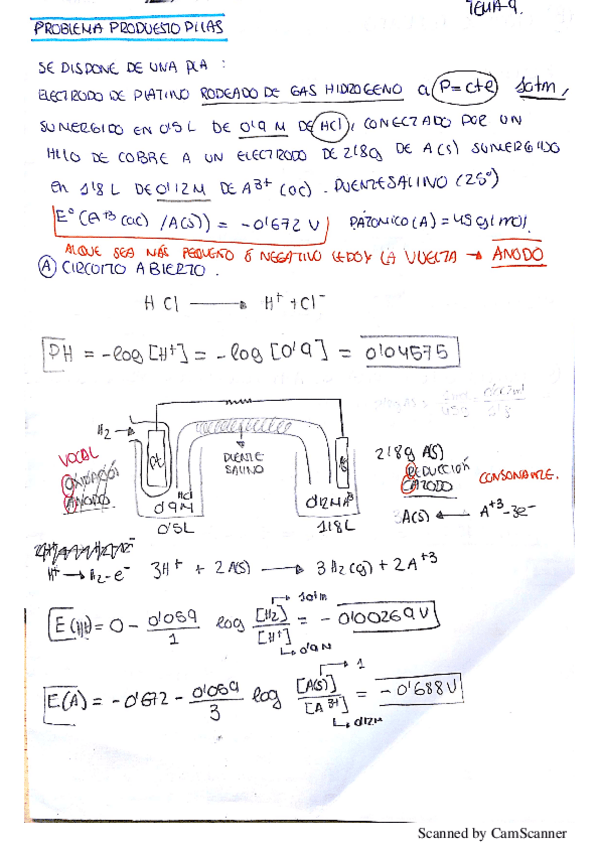 TEMA-9.
PROBLEMA PROPUESTO PILAS
SE DISPONE DE UNA PILA :
ELECTRODO DE PLATINO RODEADO DE GAS HIDROGENO a P=cte 1atm,
SUMERGIDO EN 0'5 L DE 0'9 M DE HCl, CONECTADO POR UN
HILO DE COBRE A UN ELECTRODO DE 218g DE A(s) SUMERGIDO
EN 1'8 L DE 0'12M DE A3+ (ac). PUENTE SALINO (25º)
Eº(A+3(ac) /A(s)) = -0'672 V PATOMICO(A) = 45 g/mol.
AL QUE SEA MÁS PEQUEÑO Ó NEGATIVO LE DOY LA VUELTA → ANODO
A CIRCUITO ABIERTO.
HCl → H+ + Cl-
PH = -log [H+] = -log [0'9] = 0'04575
H2 →
Pt
PUENTE SALINO
VOCAL
OXIDACIÓN
ANODO.
HCl
0'9M
0'5L
0'12M A3+
1'8L
218g A(s)
REDUCCIÓN
CATODO
CONSONANTE.
A(s) ← A+3-3e-
H+ → H2-e- 3H+ + 2A(s) → 3H2(g) + 2A+3
E(H+) = 0 - 0'059/1 log [H2]/[H+] = -0'00269V
1atm
0'9M
E(A) = -0'672 - 0'059/3 log [A(s)]/[A3+] = -0'688V
1
0'12M
Scanned by CamScanner